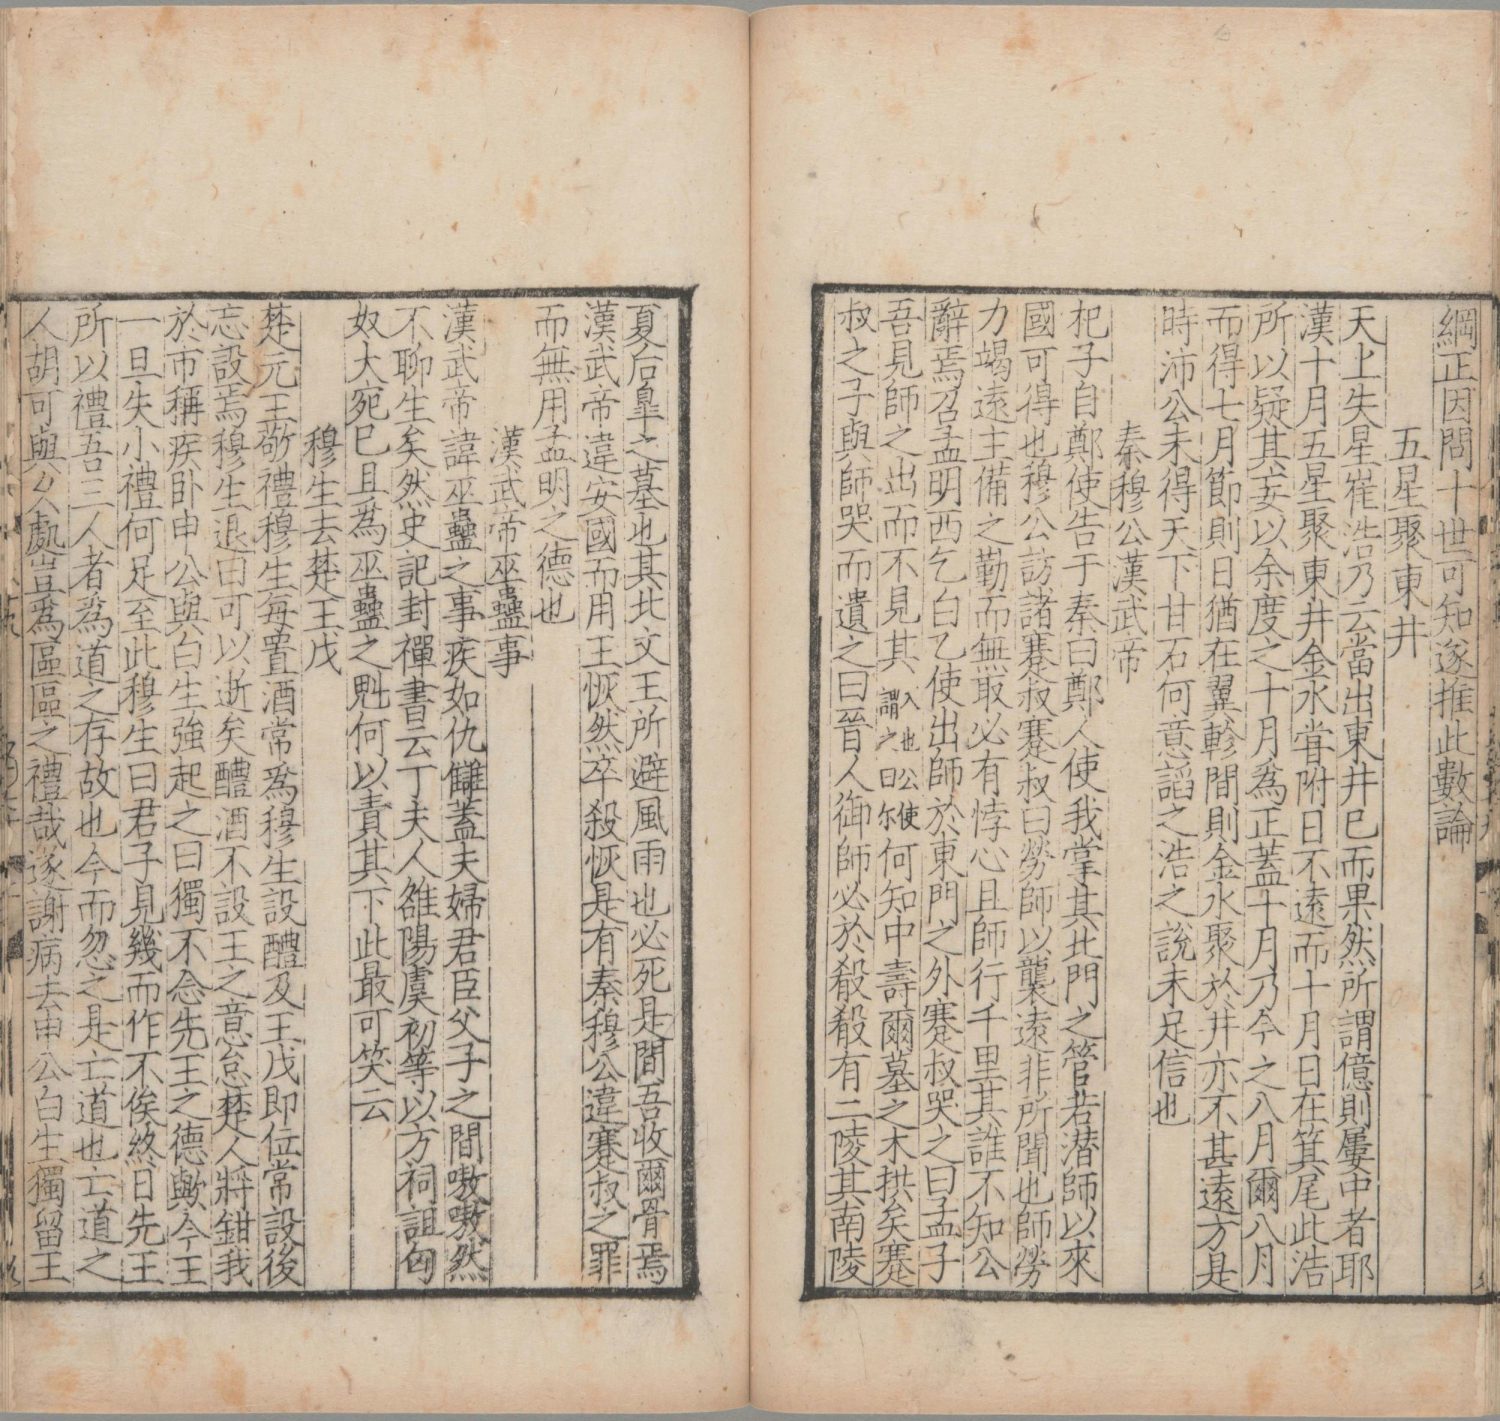 綱正因問十世可知遂推此數論
五星聚東井
天上失星崔浩乃云當出東井已而果然所謂億則屢中者耶
漢十月五星聚東井金水甞附日不遠而十月日在箕尾此浩
所以疑其妄以余度之十月為正蓋十月乃今之八月爾八月
而得七月節則日猶在翼軫間則金水聚於井亦不甚遠方是
時沛公未得天下甘石何意謟之浩之說未足信也
秦穆公漢武帝
杞子自鄭使告于秦曰鄭人使我掌其北門之管若潜師以來
國可得也穆公訪諸蹇叔蹇叔曰勞師以襲遠非所聞也師勞
力竭遠主備之勤而無取必有悖心且師行千里其誰不知公
辭焉召孟明西乞白乙使出師於東門之外蹇叔哭之曰孟子
吾見師之出而不見其入也公使謂之曰尔何知中壽爾墓之木拱矣蹇
叔之子與師哭而遺之曰晉人御師必於殽殽有二陵其南陵
夏后臯之墓也其北文王所避風雨也必死是間吾收爾骨焉
漢武帝違安國而用王恢然卒殺恢是有秦穆公違蹇叔之罪
而無用孟明之德也
漢武帝巫蠱事
漢武帝諱巫蠱之事疾如仇讎蓋夫婦君臣父子之間嗷嗷然
不聊生矣然史記封禪書云丁夫人雒陽虞初等以方祠詛匈
奴大宛已且為巫蠱之魁何以責其下此最可笑云
穆生去楚王戊
楚元王敬禮穆生每置酒常為穆生設醴及王戊即位常設後
忘設焉穆生退曰可以逝矣醴酒不設王之意怠楚人將鉗我
於市稱疾卧申公與白生強起之曰獨不念先王之德歟今王
一旦失小禮何足至此穆生曰君子見幾而作不俟終日先王
所以禮吾三人者為道之存故也今而忽之是亡道也亡道之
人胡可與久處豈為區區之禮哉遂謝病去申公白生獨留王